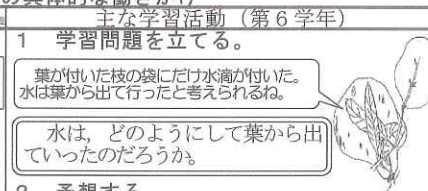 主な学習活動（第６学年）
１　学習問題を立てる。
葉が付いた枝の袋にだけ水滴が付いた。
水は葉から出て行ったと考えられるね。
水は，どのようにして葉から出
ていったのだろうか。
２　予想する